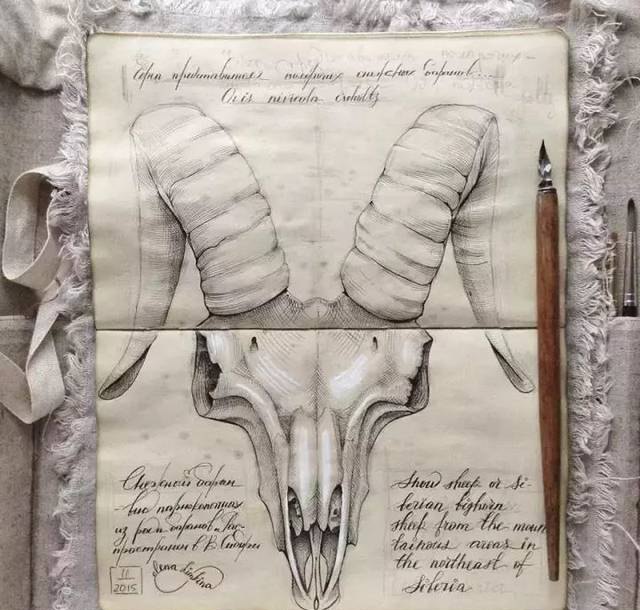 полорогих снежных баранов....
Ovis nivicola
Снежный баран
вид парнокопытных
из рода баранов. Рас-
пространен в В. Сибири
11
2015
Snow sheep or Si-
berian bighorn
sheep from the moun
tainous areas in
the northeast of
Siberia